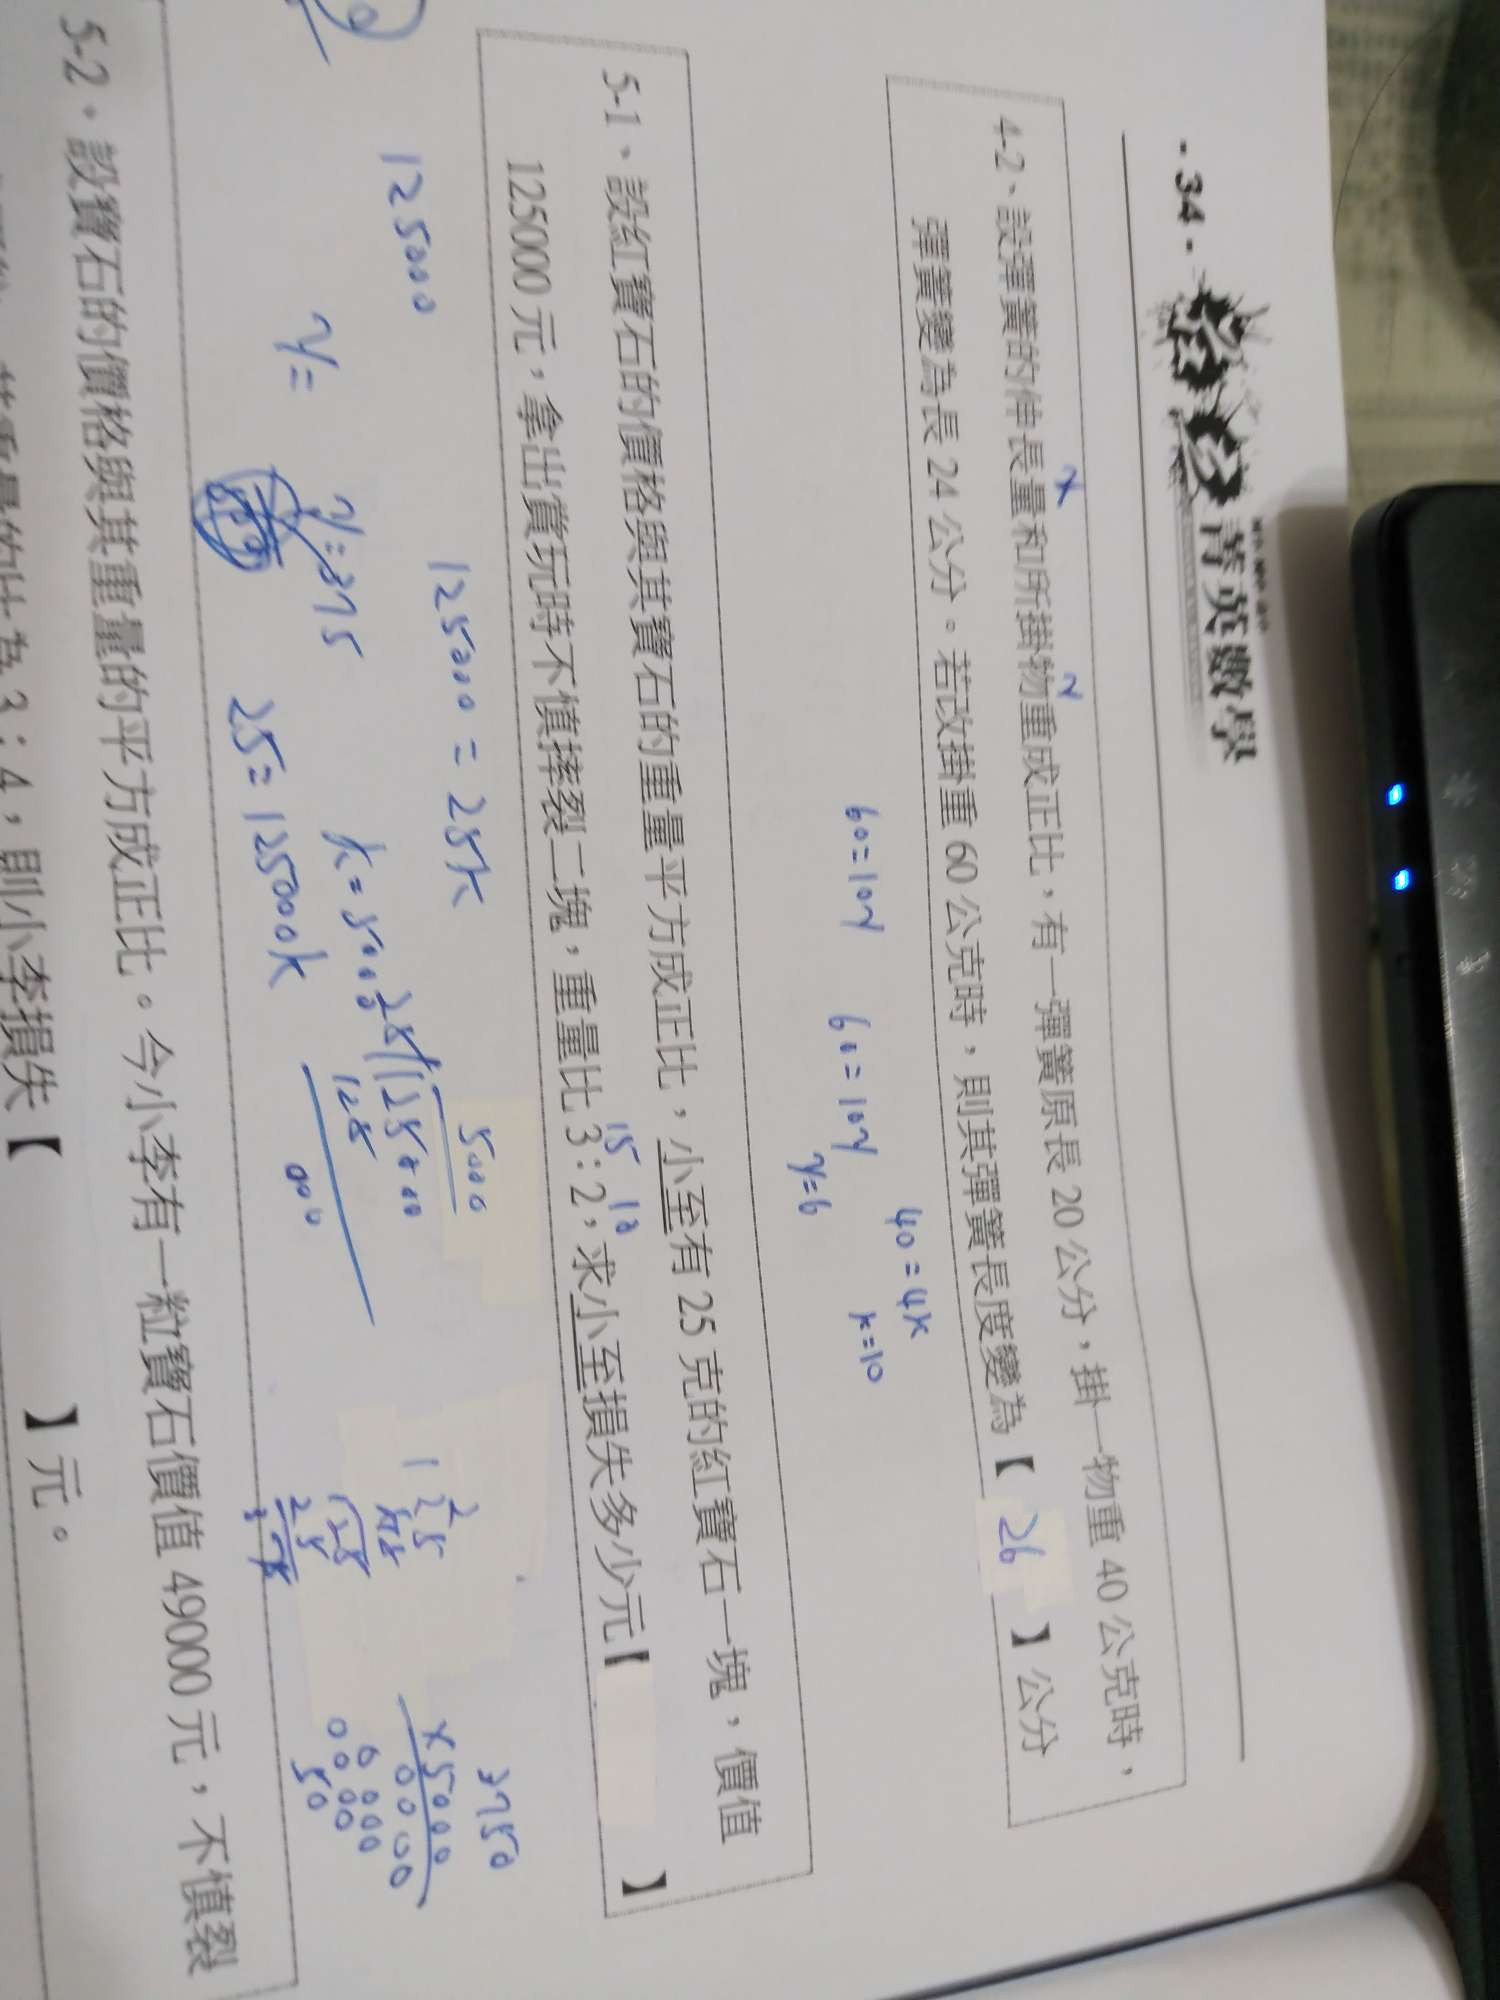 - 34 -
菁英數學
4-2、設彈簧的伸長量和所掛物重成正比，有一彈簧原長 20 公分，掛一物重 40 公克時，
彈簧變為長 24 公分。若改掛重 60 公克時，則其彈簧長度變為【 26 】公分
x
y
40=4k
k=10
60=10y
60=10y
y=6
5-1、設紅寶石的價格與其寶石的重量平方成正比，小至有 25 克的紅寶石一塊，價值
125000 元，拿出賞玩時不慎摔裂二塊，重量比 3：2，求小至損失多少元【 】
15 10
125000
125000=25k
y=
y=375
k=5000
25=125000k
5000
25 125000
125
000
125
3750
×5000
0000
5-2．設寶石的價格與其重量的平方成正比。今小李有一粒寶石價值 49000 元，不慎裂
3：4，則小李損失【 】元。